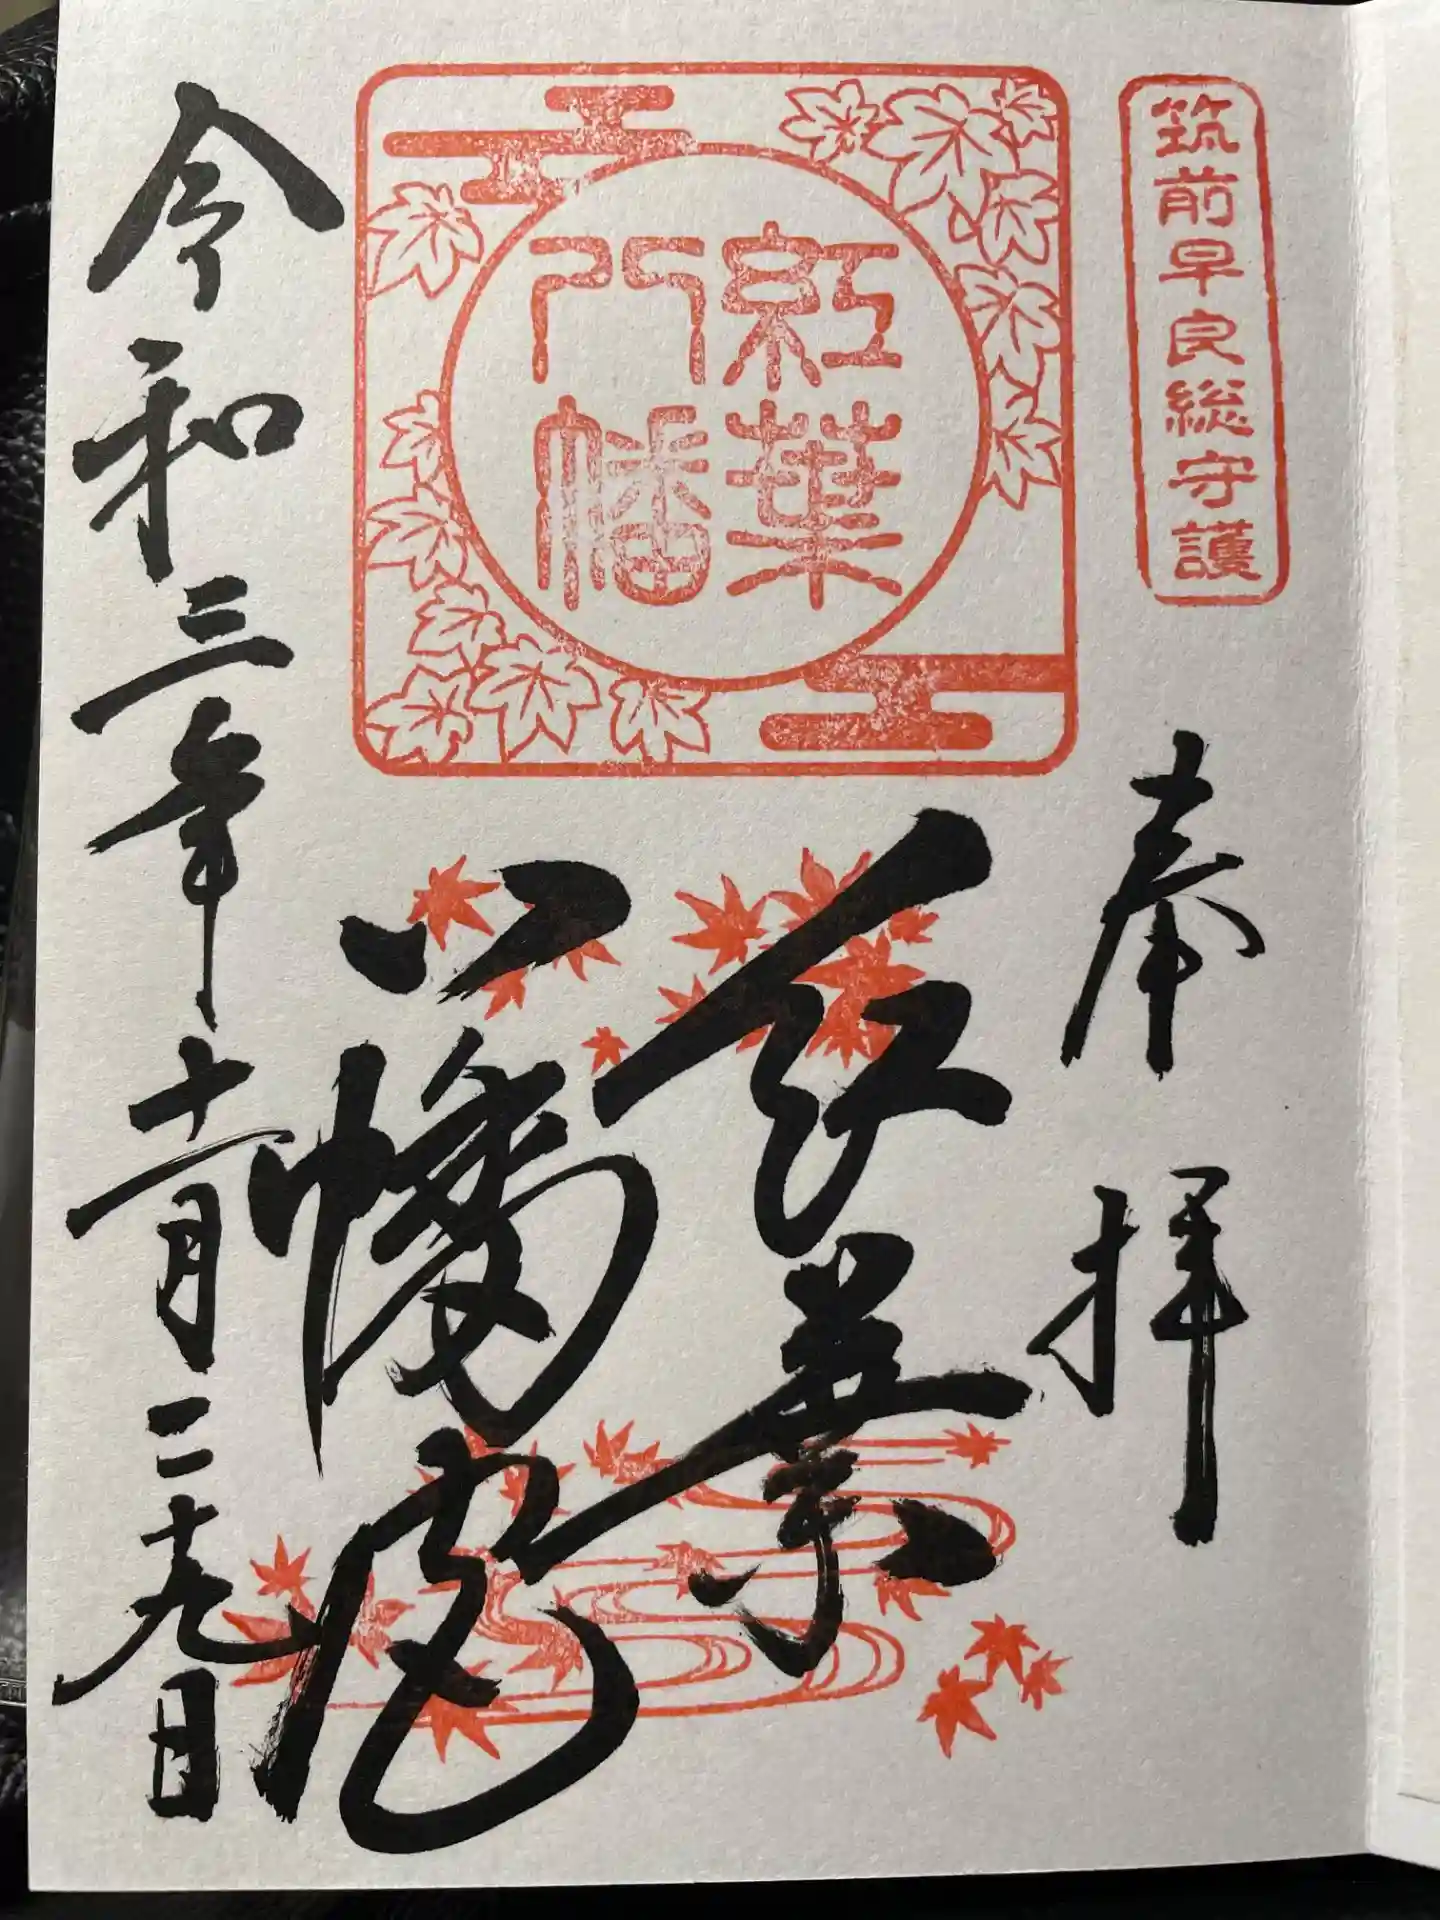 筑前早良総守護
奉拝
紅葉
八幡
紅葉
八幡宮
令和三年十一月二十九日